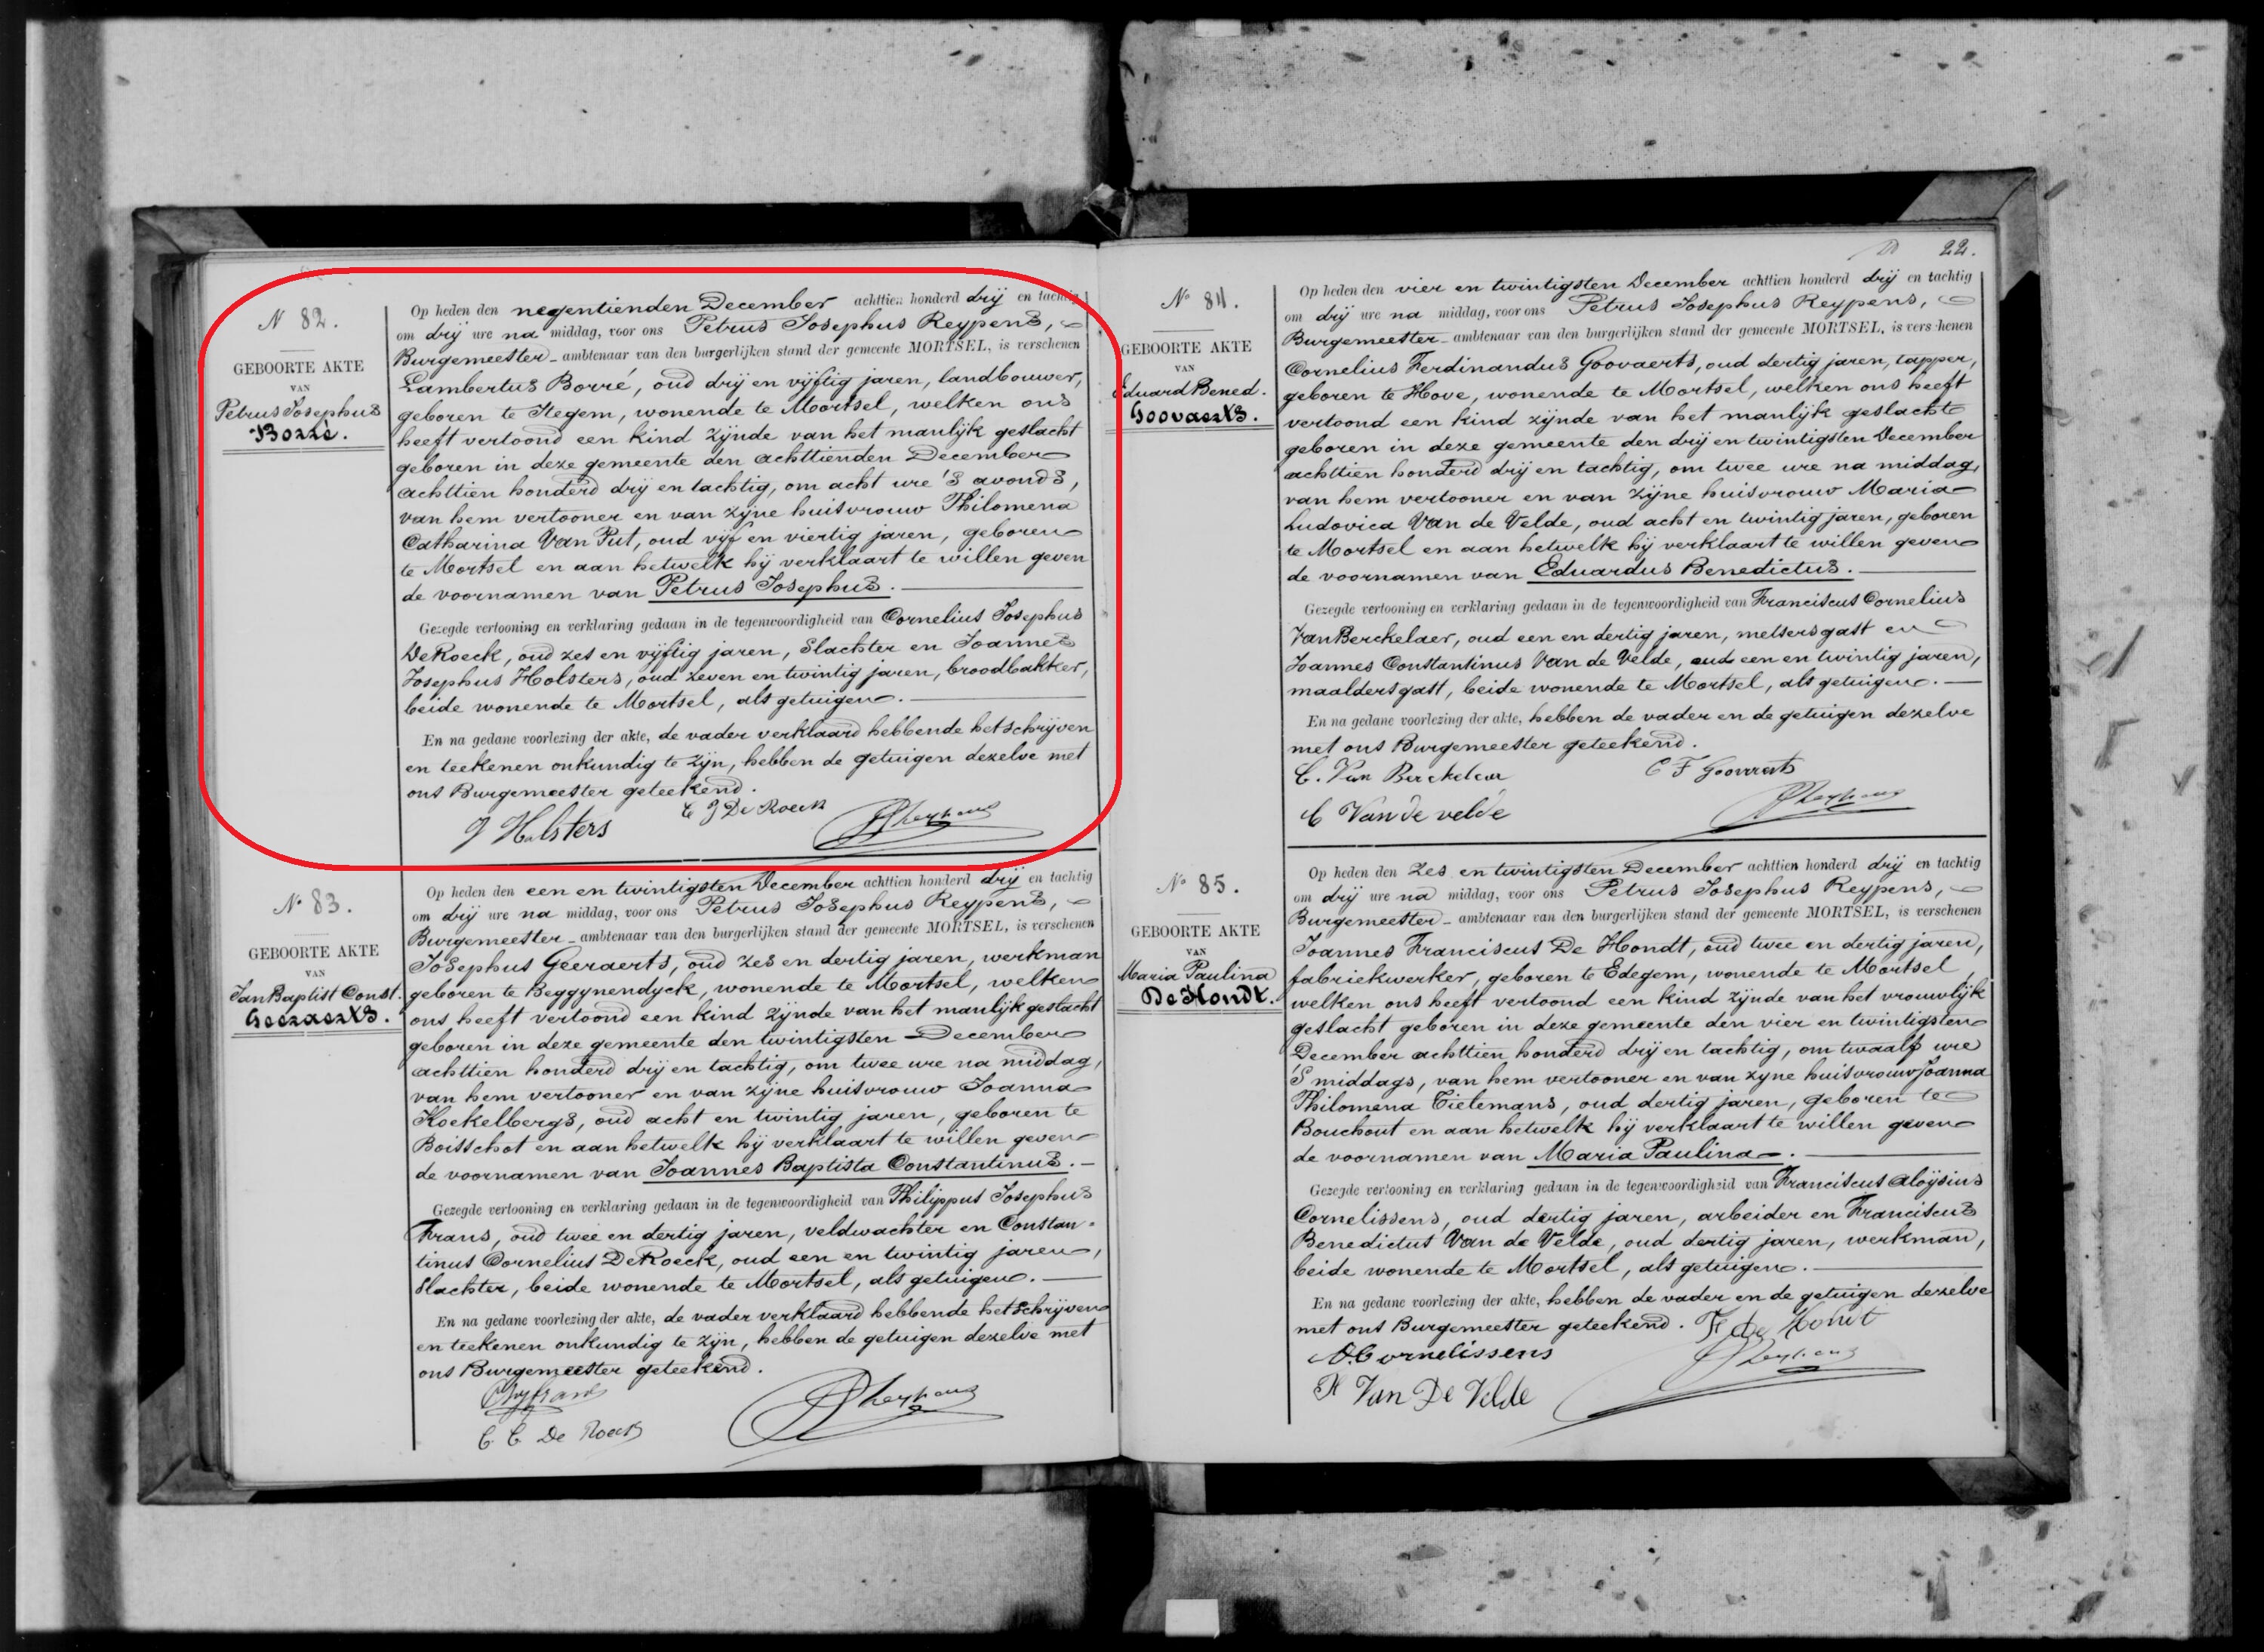 22.
N 82.
GEBOORTE AKTE
VAN
Petrus Josephus
Borré.
Op heden den negentienden December achttien honderd drij en tachtig
om drij ure na middag, voor ons Petrus Josephus Reypens,
Burgemeester - ambtenaar van den burgerlijken stand der gemeente MORTSEL, is verschenen
Lambertus Borré, oud drij en vijftig jaren, landbouwer,
geboren te Itegem, wonende te Mortsel, welken ons
heeft vertoond een kind zijnde van het manlijk geslacht
geboren in deze gemeente den achttienden December
achttien honderd drij en tachtig, om acht ure 's avonds,
van hem vertooner en van zijne huisvrouw Philomena
Catharina Van Put, oud vijf en viertig jaren, geboren
te Mortsel en aan hetwelk hij verklaart te willen geven
de voornamen van Petrus Josephus.
Gezegde vertooning en verklaring gedaan in de tegenwoordigheid van Cornelius Josephus
De Roeck, oud zes en vijftig jaren, slachter en Joannes
Josephus Holsters, oud zeven en twintig jaren, broodbakker,
beide wonende te Mortsel, als getuigen.
En na gedane voorlezing der akte, de vader verklaard hebbende het schrijven
en teekenen onkundig te zijn, hebben de getuigen dezelve met
ons Burgemeester geteekend.
J Holsters C J De Roeck
N° 83.
GEBOORTE AKTE
VAN
Jan Baptist Const.
Geeraerts.
Op heden den een en twintigsten December achttien honderd drij en tachtig
om drij ure na middag, voor ons Petrus Josephus Reypens,
Burgemeester - ambtenaar van den burgerlijken stand der gemeente MORTSEL, is verschenen
Josephus Geeraerts, oud zes en dertig jaren, werkman
geboren te Beggynendyck, wonende te Mortsel, welken
ons heeft vertoond een kind zijnde van het manlijk geslacht
geboren in deze gemeente den twintigsten December
achttien honderd drij en tachtig, om twee ure na middag,
van hem vertooner en van zijne huisvrouw Joanna
Kockelbergs, oud acht en twintig jaren, geboren te
Boisschot en aan hetwelk hij verklaart te willen geven
de voornamen van Joannes Baptista Constantinus.
Gezegde vertooning en verklaring gedaan in de tegenwoordigheid van Philippus Josephus
Frans, oud twee en dertig jaren, veldwachter en Constan-
tinus Cornelius De Roeck, oud een en twintig jaren,
slachter, beide wonende te Mortsel, als getuigen.
En na gedane voorlezing der akte, de vader verklaard hebbende het schrijven
en teekenen onkundig te zijn, hebben de getuigen dezelve met
ons Burgemeester geteekend.
C. C. De Roeck
N° 84.
GEBOORTE AKTE
VAN
Eduard Bened.
Goovaerts.
Op heden den vier en twintigsten December achttien honderd drij en tachtig
om drij ure na middag, voor ons Petrus Josephus Reypens,
Burgemeester - ambtenaar van den burgerlijken stand der gemeente MORTSEL, is verschenen
Cornelius Ferdinandus Goovaerts, oud dertig jaren, tapper,
geboren te Hove, wonende te Mortsel, welken ons heeft
vertoond een kind zijnde van het manlijk geslacht
geboren in deze gemeente den drij en twintigsten December
achttien honderd drij en tachtig, om twee ure na middag,
van hem vertooner en van zijne huisvrouw Maria
Ludovica Van de Velde, oud acht en twintig jaren, geboren
te Mortsel en aan hetwelk hij verklaart te willen geven
de voornamen van Eduardus Benedictus.
Gezegde vertooning en verklaring gedaan in de tegenwoordigheid van Franciscus Cornelius
Van Berckelaer, oud een en dertig jaren, metsersgast en
Joannes Constantinus Van de Velde, oud een en twintig jaren,
maaldersgast, beide wonende te Mortsel, als getuigen.
En na gedane voorlezing der akte, hebben de vader en de getuigen dezelve
met ons Burgemeester geteekend.
C. Van Berckelaer C F Goovaerts
C Van de velde
N° 85.
GEBOORTE AKTE
VAN
Maria Paulina
De Hondt.
Op heden den zes en twintigsten December achttien honderd drij en tachtig
om drij ure na middag, voor ons Petrus Josephus Reypens,
Burgemeester - ambtenaar van den burgerlijken stand der gemeente MORTSEL, is verschenen
Joannes Franciscus De Hondt, oud twee en dertig jaren,
fabriekwerker, geboren te Edegem, wonende te Mortsel
welken ons heeft vertoond een kind zijnde van het vrouwlijk
geslacht geboren in deze gemeente den vier en twintigsten
December achttien honderd drij en tachtig, om twaalf ure
's middags, van hem vertooner en van zyne huisvrouw Joanna
Philomena Tielemans, oud dertig jaren, geboren te
Bouchout en aan hetwelk hij verklaart te willen geven
de voornamen van Maria Paulina.
Gezegde vertooning en verklaring gedaan in de tegenwoordigheid van Franciscus Aloÿsius
Cornelissens, oud dertig jaren, arbeider en Franciscus
Benedictus Van de Velde, oud dertig jaren, werkman,
beide wonende te Mortsel, als getuigen.
En na gedane voorlezing der akte, hebben de vader en de getuigen dezelve
met ons Burgemeester geteekend. F de Hondt
A. Cornelissens
Van De Velde